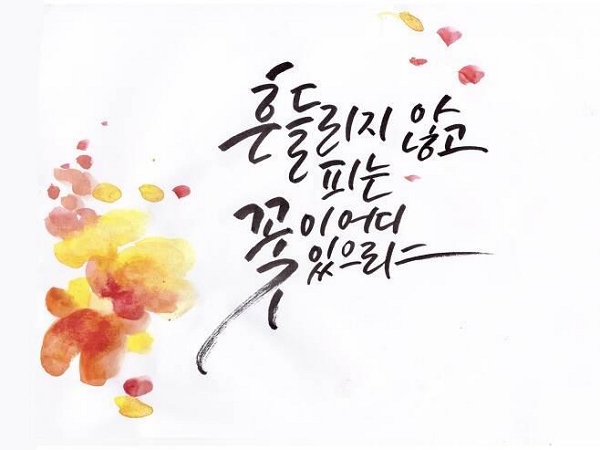 흔들리지 않고
피는
꽃이 어디
있으리